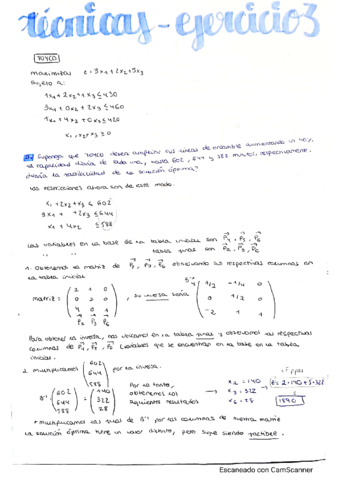 técnicas - ejercicio 3
TOYCO
maximizar z = 3x1 + 2x2 + 5x3
sujeto a:
1x1 + 2x2 + 1x3 ≤ 430
3x1 + 0x2 + 2x3 ≤ 460
1x1 + 4x2 + 0x3 ≤ 420
x1, x2, x3 ≥ 0
Suponga que TOYCO desea ampliar sus líneas de ensamble aumentando un 40%
la capacidad diaria de cada una, hasta 602, 644 y 588 minutos, respectivamente.
la factibilidad de la solución óptima?
Las restricciones ahora son de este modo.
x1 + 2x2 + x3 ≤ 602
3x1 + 2x3 ≤ 644
x1 + 4x2 ≤ 588
Las variables en la base de la tabla inicial son
tabla final son
1. Obtenemos la matriz de P2, P3, P6 observando las respectivas columnas en
la tabla inicial
matriz = ( 2 1 0 , su inversa sería B-1 ( 1/2 -1/4 0
0 2 0 0 1/2 0
4 0 1 ) -2 1 1 )
P2 P3 P6
Para obtener la inversa, nos ubicamos en la tabla final y obtenemos las respectivas
columnas de (variables que se encuentran en la base en la tabla
inicial.
2. multiplicamos ( 602 644 588 ) por la inversa.
B-1 ( 602 644 588 ) = ( 140 322 28 )
Por lo tanto,
obtenemos los
siguientes resultados
x2 = 140
x3 = 322
x6 = 28
z = 2·140 + 5·322
1890
* multiplicamos las filas de B-1 por las columnas de nuestra matriz
La solución óptima tiene un valor distinto, pero sigue siendo factible.
Escaneado con CamScanner